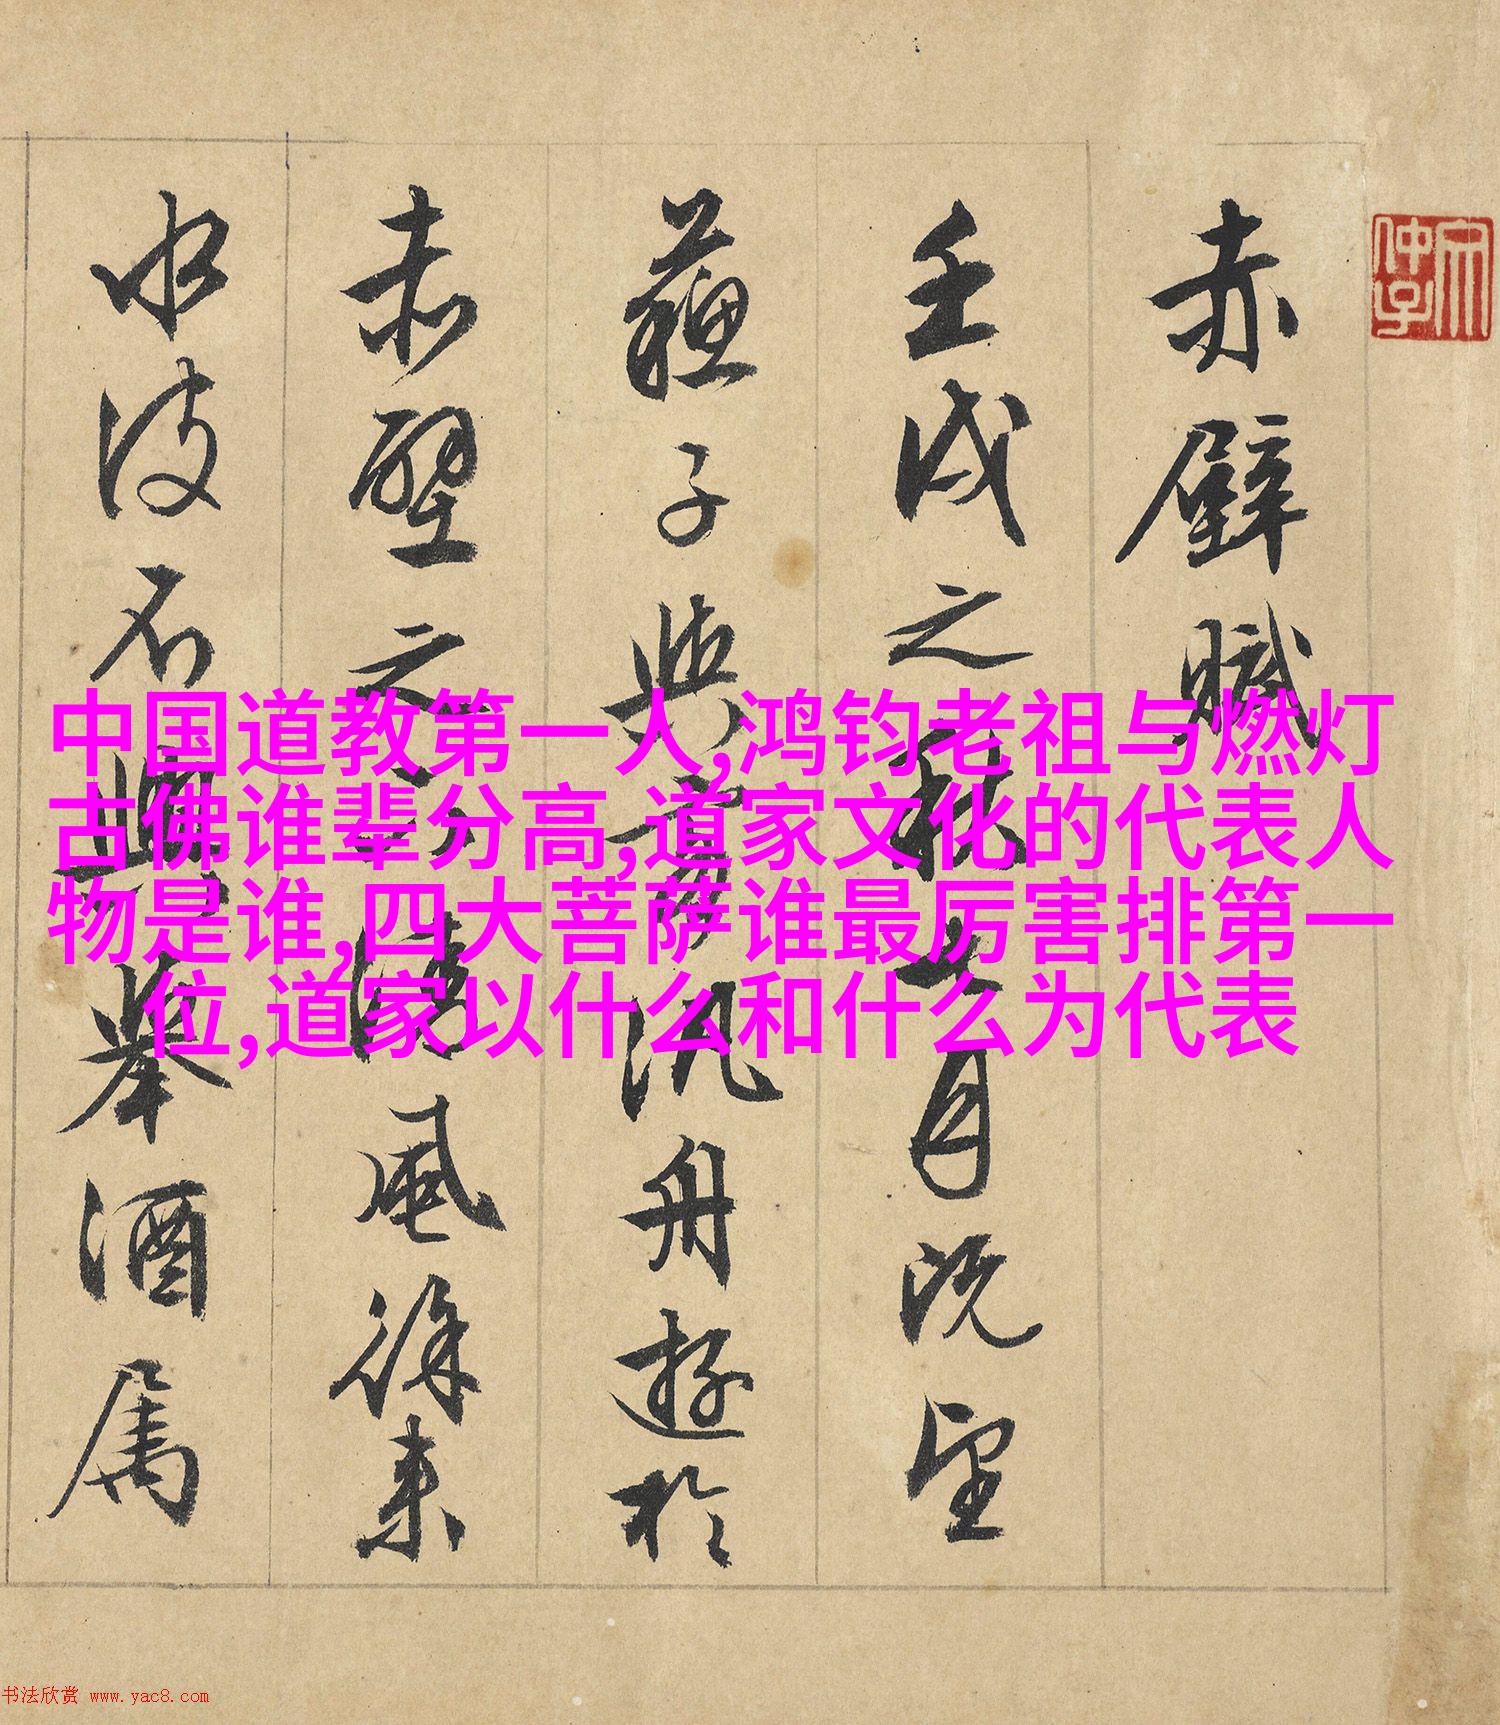 赤壁賦
壬戌之秋七月既望
蘇子與客汎舟遊於
赤壁之下清風徐來
水波不興舉酒屬
中国道教第一人,鸿钧老祖与燃灯
古佛谁辈分高,道家文化的代表人
物是谁,四大菩萨谁最厉害排第一
位,道家以什么和什么为代表
书法欣赏 www.yac8.com